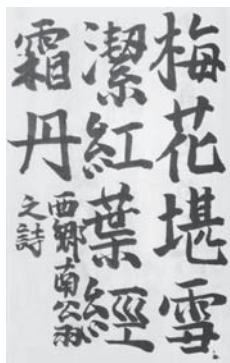 梅花堪雪
潔紅葉經
霜丹
西郷南公洲
之詩